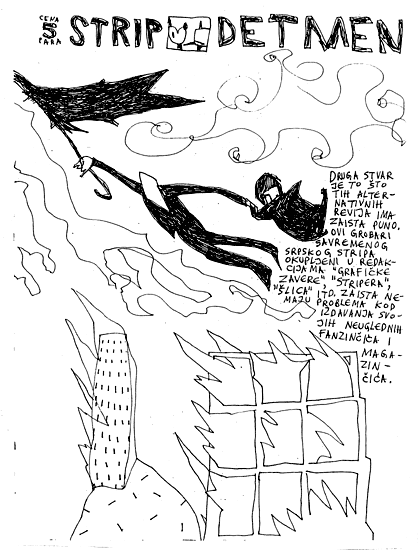 CENA
5
PARA
STRIP DETMEN
DRUGA STVAR
JE TO ŠTO
TIH ALTER-
NATIVNIH
REVIJA IMA
ZAISTA PUNO.
OVI GROBARI
SAVREMENOG
SRPSKOG STRIPA
OKUPLJENI U REDAK-
CIJAMA "GRAFIČKE
ZAVERE", "STRIPERA",
"ŠLICA", ITD. ZAISTA NE-
MAJU PROBLEMA KOD
IZDAVANJA SVO-
JIH NEUGLEDNIH
FANZINČIĆA I
MAGA-
ZIN-
ČIĆA.